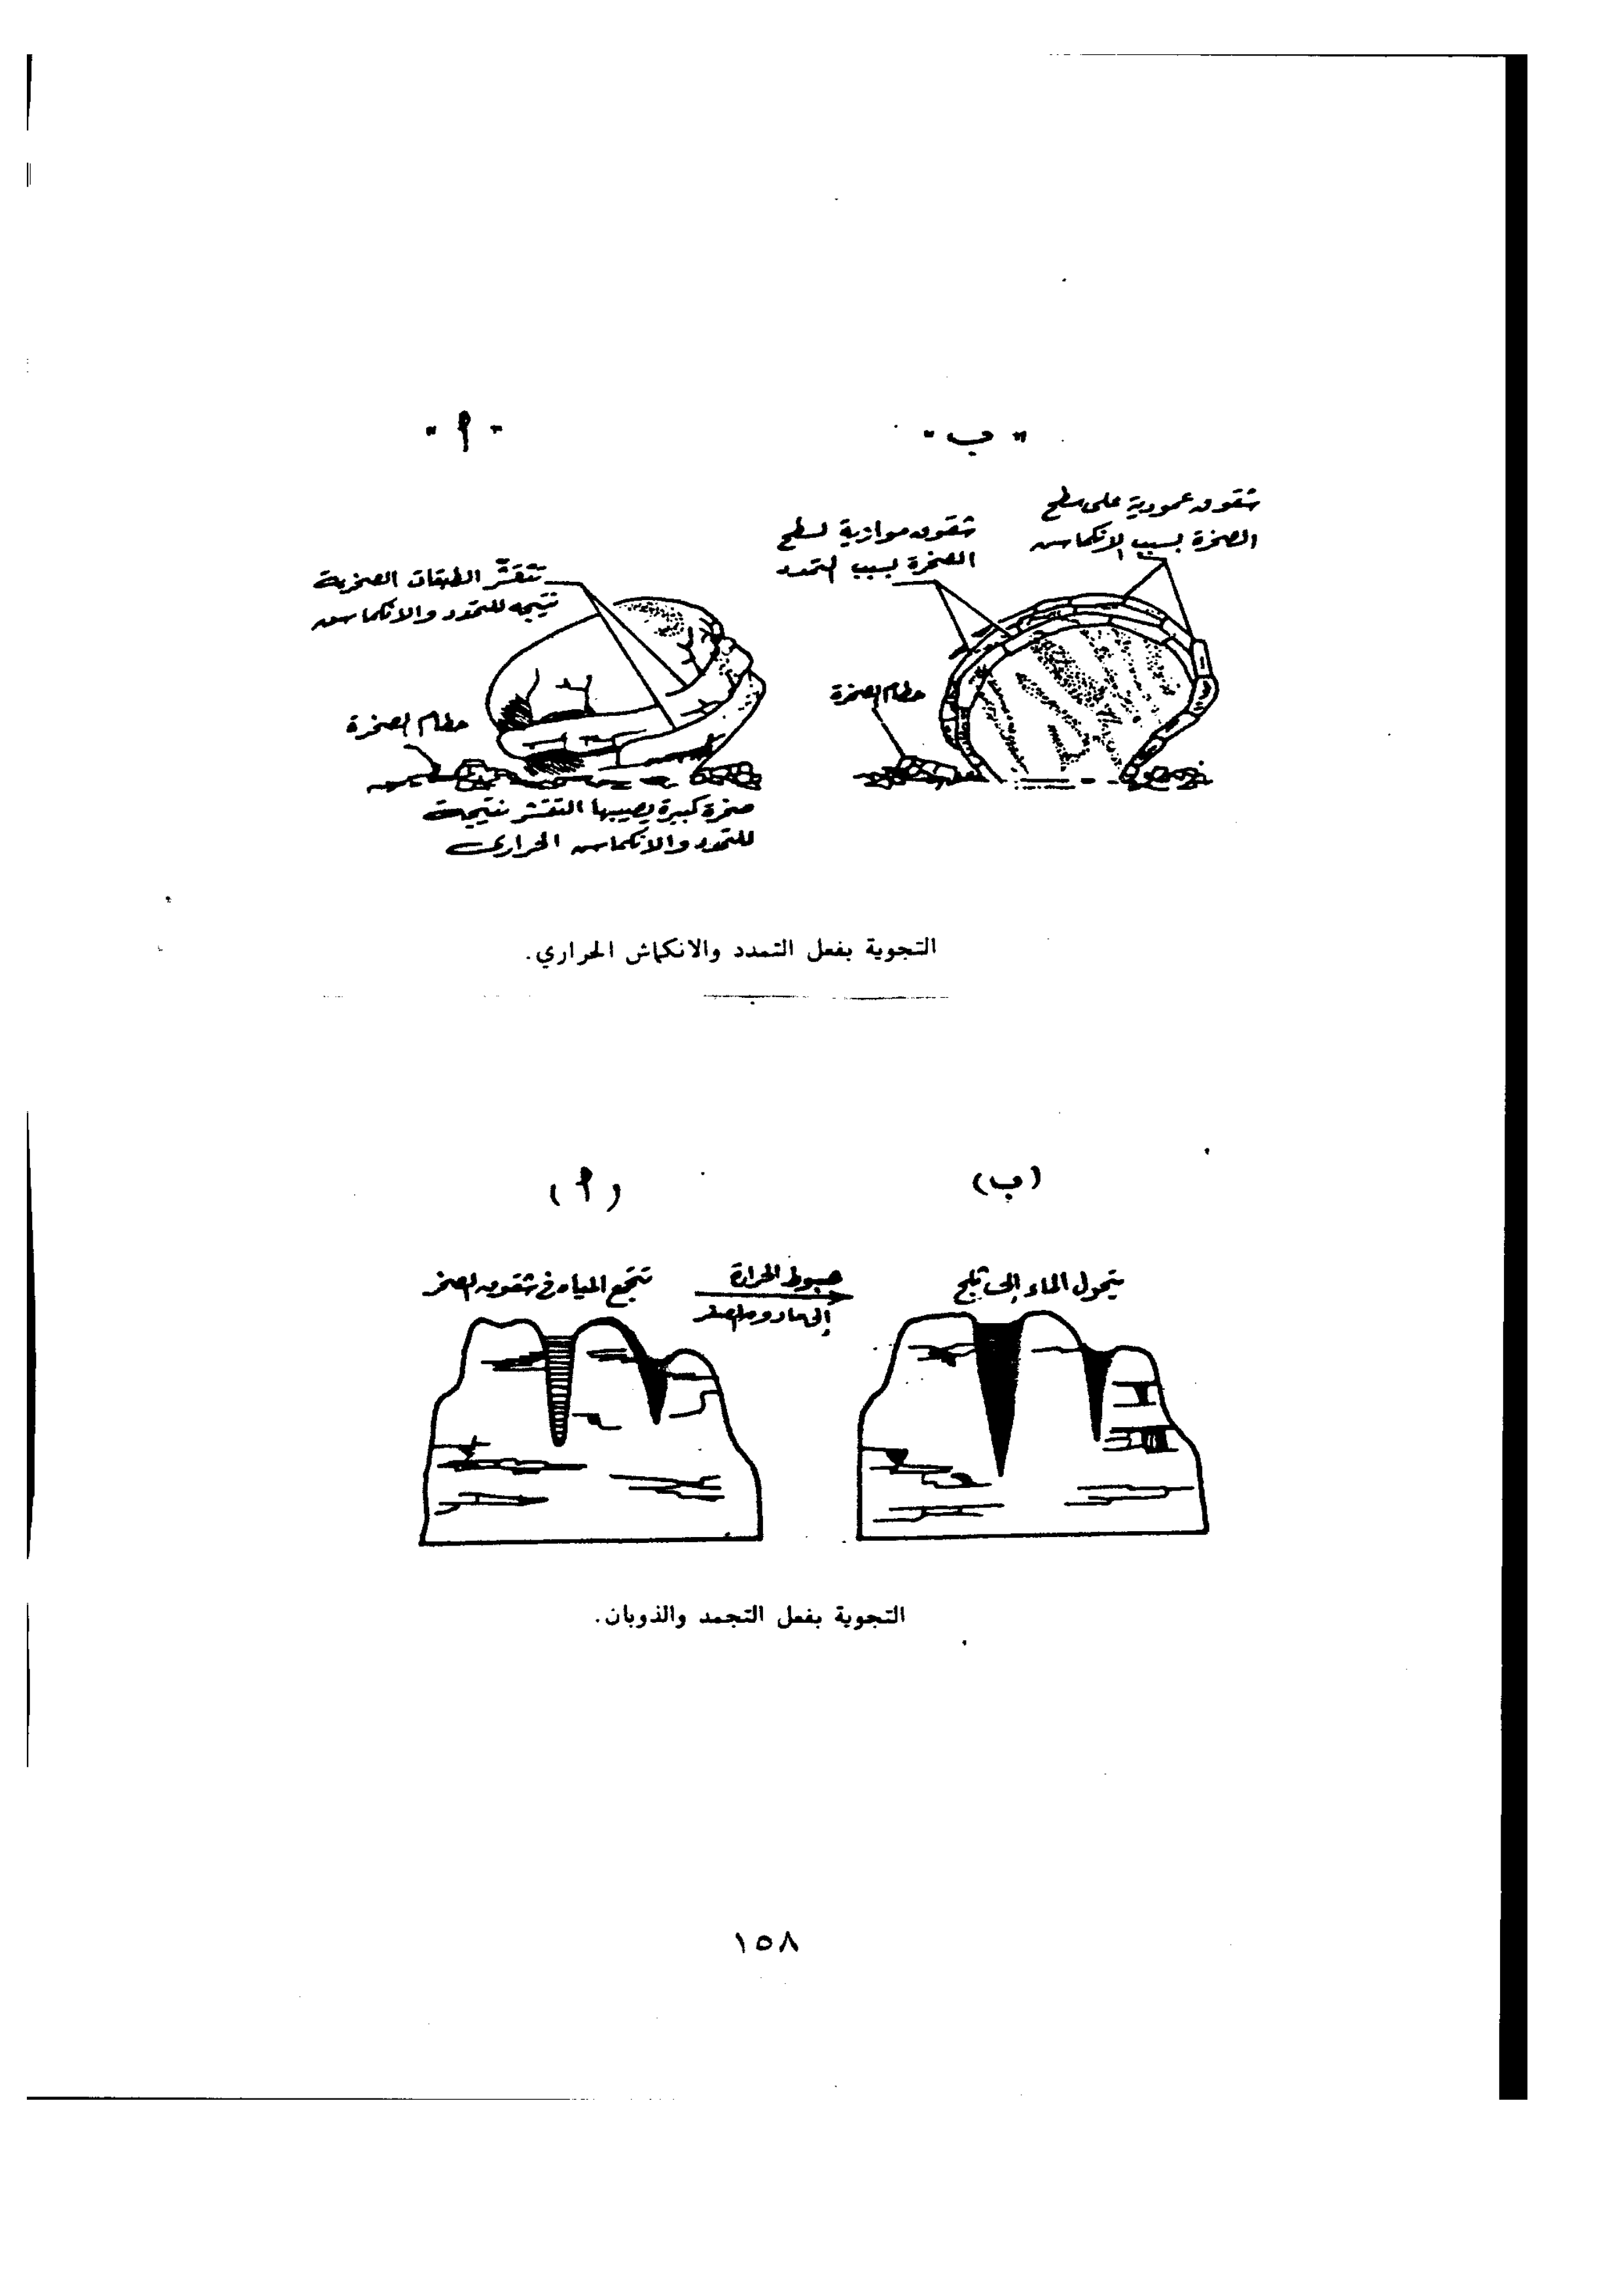 "ب"
"أ"
شقوق عمودية على سطح
الصخرة بسبب الانكماش
شقوق موازية لسطح
الصخرة بسبب التمدد
حطام الصخرة
تتقشّر الطبقات الصخرية
نتيجة للتمدد والانكماش
حطام الصخرة
صخرة كبيرة يصيبها التقشر نتيجة
للتمدد والانكماش الحراري
التجوية بفعل التمدد والانكماش الحراري.
(ب)
(أ)
يتحول الماء إلى ثلج
هبوط الحرارة
إلى مادون الصفر
تتجمع المياه في شقوق الصخر
التجوية بفعل التجمد والذوبان.
١٥٨